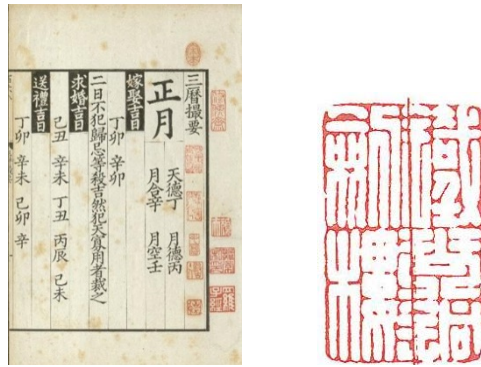 三曆撮要
正月
天德丁 月德丙
月合辛 月空壬
嫁娶吉日
丁卯 辛卯
二日不犯歸忌等殺吉然犯天寡用者裁之
求婚吉日
己丑 辛未 丁丑 丙辰 己未
送禮吉日
丁卯 辛未 己卯 辛
鐵琴銅
劍樓